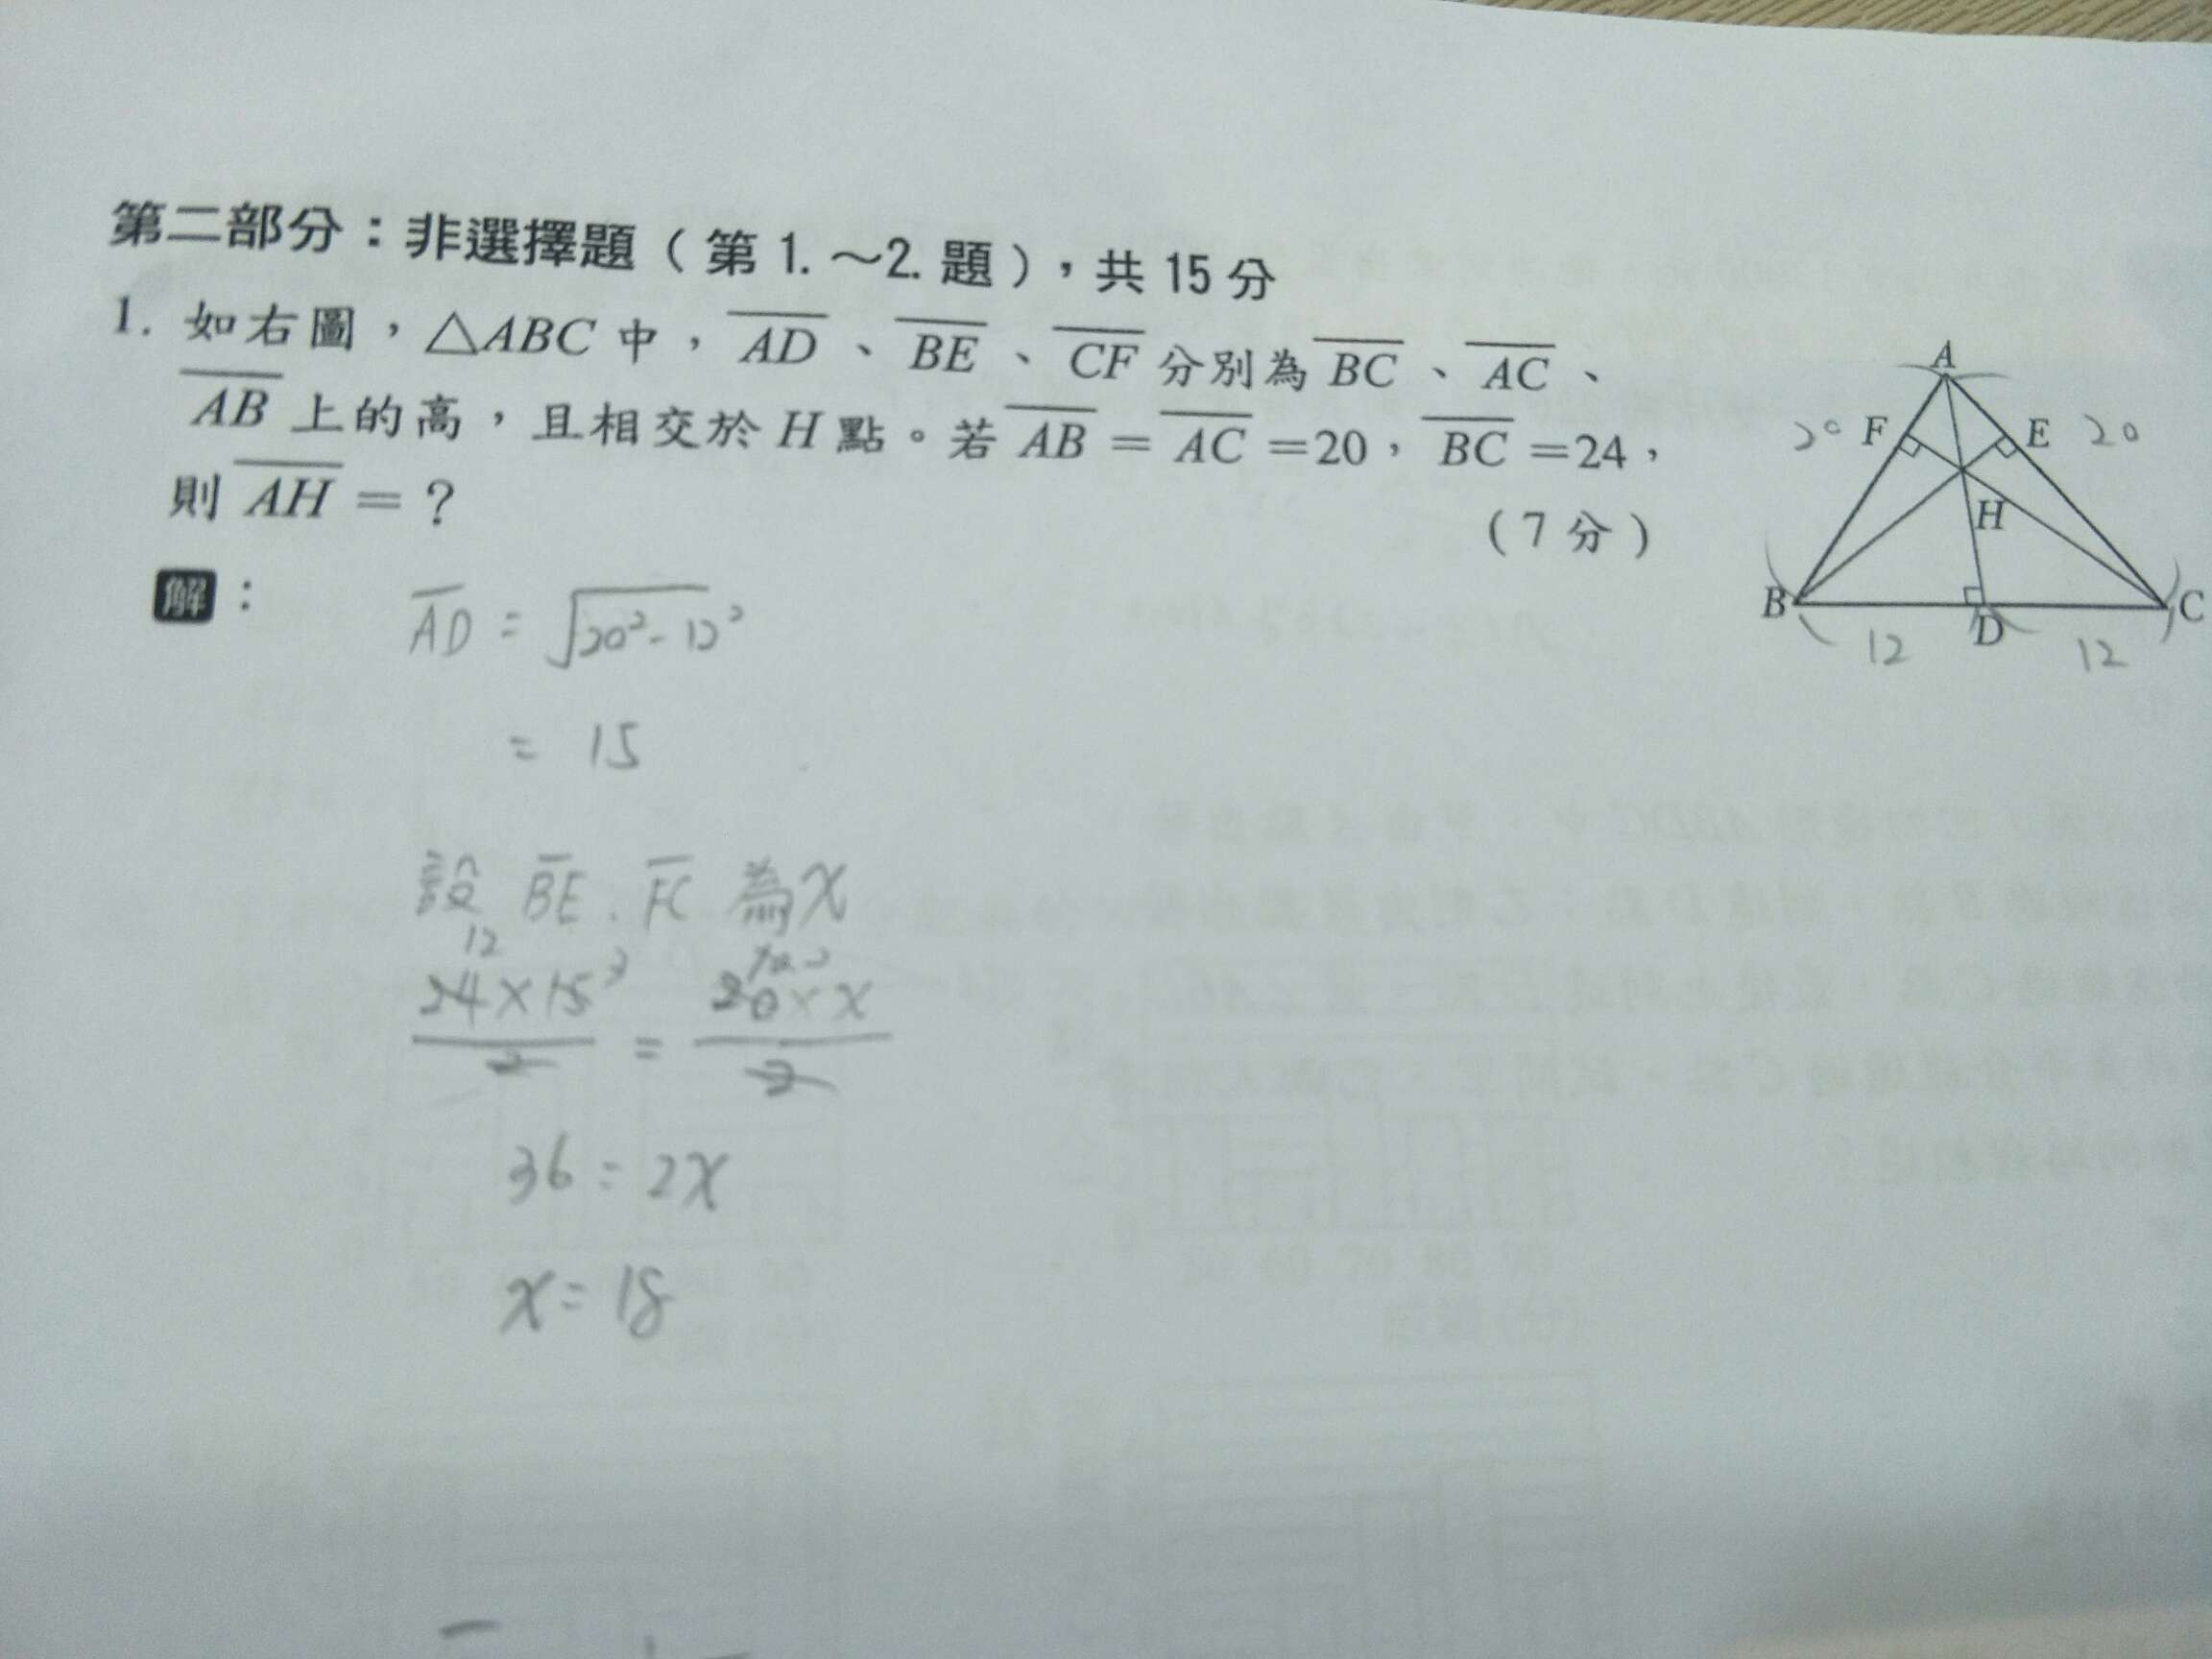 第二部分：非選擇題（第 1. ～2. 題），共 15 分
1. 如右圖，△ABC 中，AD、BE、CF 分別為 BC、AC、
AB 上的高，且相交於 H 點。若 AB = AC =20，BC =24，
則 AH = ？
（7 分）
A
20 F E 20
H
B D C
12 12
解：
AD = √20²-12²
= 15
設 BE . FC 為 X
12
24×15 3 = 20×X
2 2
36 = 2X
X = 18